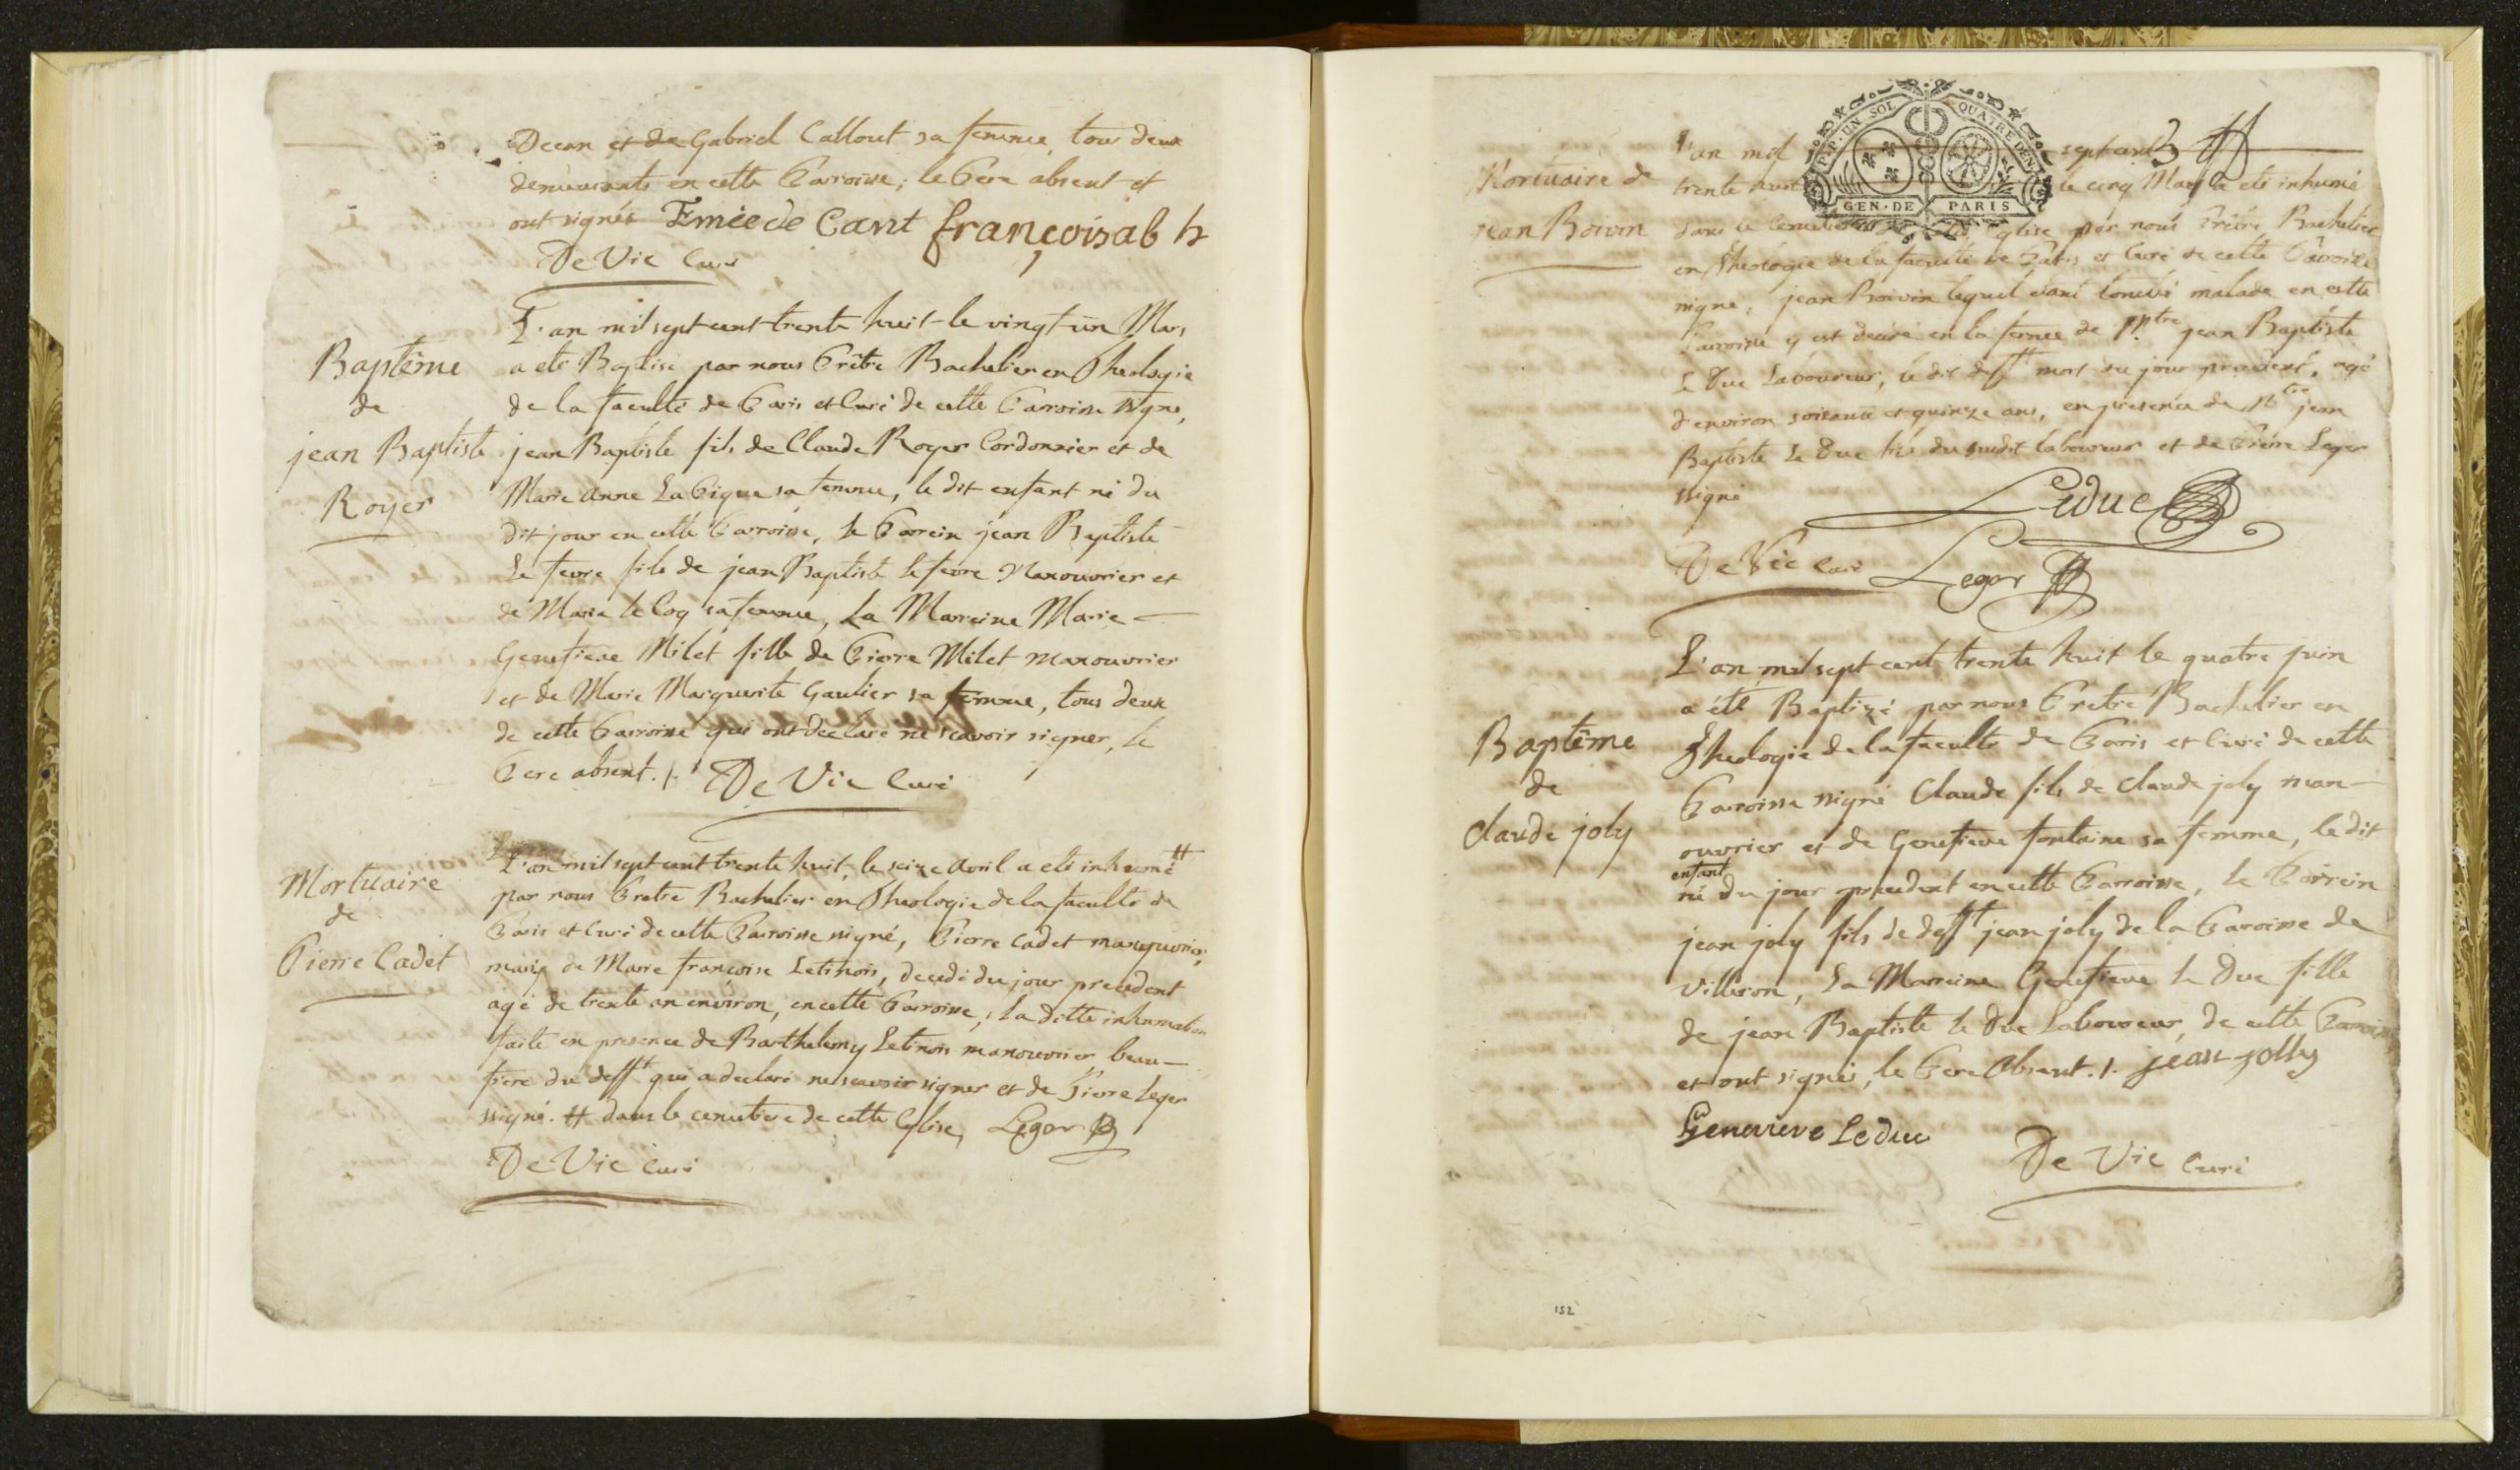 Decan et de Gabriel Callout sa femme, tous deux
demeurants en cette Parroisse, le Pere absent et
ont signés Emiée de Cant françois ab h
De Vic Curé
Baptême
de
jean Baptiste
Royer
L'an mil sept cent trente huit le vingt un Mars
a eté Baptisé par nous Prêtre Bachelier en Theologie
de la faculté de Paris et Curé de cette Parroisse ssigné,
jean Baptiste fils de Claude Royer Cordonnier et de
Marie Anne La Pique sa femme, le dit enfant né du
dit jour en cette Parroisse, le Parrein jean Baptiste
Le fevre fils de jean Baptiste le fevre Manouvrier et
de Marie le Coq sa femme, La Marreine Marie
Genefieve Milet fille de Pierre Milet manouvrier
et de Marie Marguerite Gaulier sa femme, tous deux
de cette Parroisse qui ont declaré ne scavoir signer, le
Pere absent. /. De Vic Curé
Mortuaire
de
Pierre Cadet
L'an mil sept cent trente huit, le seize Avril a eté inhumé #
par nous Pretre Bachelier en Theologie de la faculté de
Paris et Curé de cette Parroisse ssigné, Pierre Cadet manouvrier,
mari de Marie françoise Letinois, decedé du jour precedent
agé de trente an environ, en cette Parroisse, la ditte inhumation
faite en presence de Barthelemy Letinois manouvrier beau-
frere du defft qui a declaré ne scavoir signer et de Pierre Leger
ssigné. # dans le cemetiere de cette Eglise, Leger
De Vic Curé
Mortuaire de
jean Boivin
GEN. DE PARIS
P.P. UN SOL QUATRE DEN.
L'an mil sept cent
trente huit le cinq May a eté inhumé
dans le Cemetiere Eglise par nous Prêtre Bachelier
en Theologie de la faculté de Paris et Curé de cette Parroisse
ssigné, jean Boivin lequel etant tombé malade en cette
Parroisse y est decedé en la ferme de Mtre jean Baptiste
Le Duc Laboureur, le dit defft mort du jour precedent, agé
d'environ soixante et quinze ans, en presence de Mtre jean
Baptiste Le Duc fils du susdit laboureur et de Pierre Leger
ssigné
Leduc
De Vic Curé Leger
Baptême
de
Claude joly
L'an mil sept cent trente huit le quatre juin
a été Baptizé par nous Pretre Bachelier en
Theologie de la faculté de Paris et Curé de cette
Parroisse ssigné Claude fils de Claude joly man-
ouvrier et de Genefieve fontaine sa femme, le dit
enfant
né du jour precedent en cette Parroisse, le Parrein
jean joly fils de defft jean joly de la Paroisse de
Villeron, La Marreine Genefieve le Duc fille
de jean Baptiste le Duc Laboureur, de cette Parroisse
et ont signés, le Pere Absent. /. jean jolly
Genevieve Leduc
De Vic Curé
152